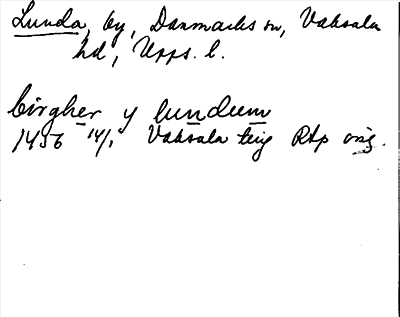 Lunda, by, Danmarks sn, Vaksala
hd, Upps. l.
birgher y lundum
1456 14/1 Vaksala ting Rtp orig.